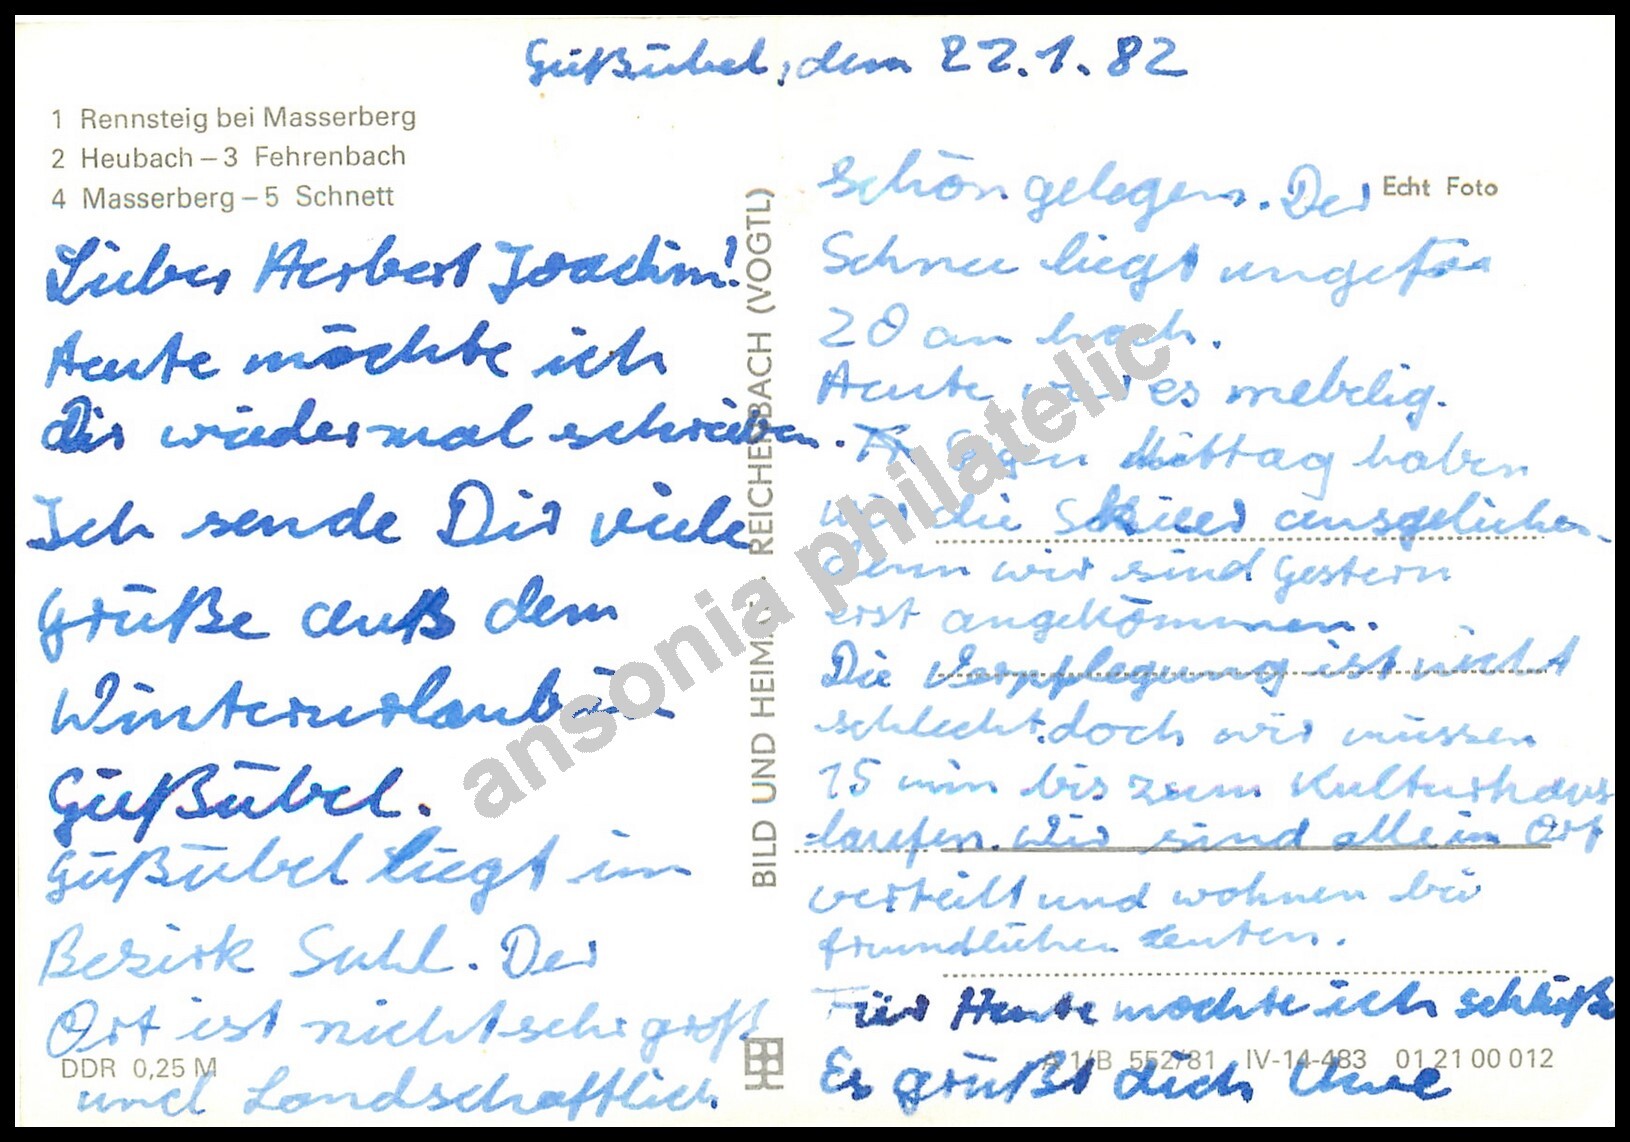 Gießübel, dem 22.1.82
1 Rennsteig bei Masserberg
2 Heubach – 3 Fehrenbach
4 Masserberg – 5 Schnett
Lieber Herbert Joachim!
Heute möchte ich
dir wiedermal schreiben.
Ich sende Dir viele
Grüße auß dem
Winterurlaub in
Gießübel.
Gießübel liegt im
Bezirk Suhl. Der
Ort ist nicht sehr groß
und Landschaftlich
DDR 0,25 M
BILD UND HEIMAT REICHENBACH (VOGTL)
schön gelegen. Der
Echt Foto
Schnee liegt ungefär
20 cm hoch.
Heute war es nebelig.
Gegen Mittag haben
wir die Skier ausgeliehen,
denn wir sind Gestern
erst angekommen.
Die Verpflegung ist nicht
schlecht, doch wir müssen
15 min bis zum Kulturhaus
laufen. Wir sind alle im Ort
verteilt und wohnen bei
freundlichen Leuten.
Für Heute möchte ich schließe
Es grüßt dich Uwe
A 1/B 552/81 IV-14-483 01 21 00 012
ansonia philatelic